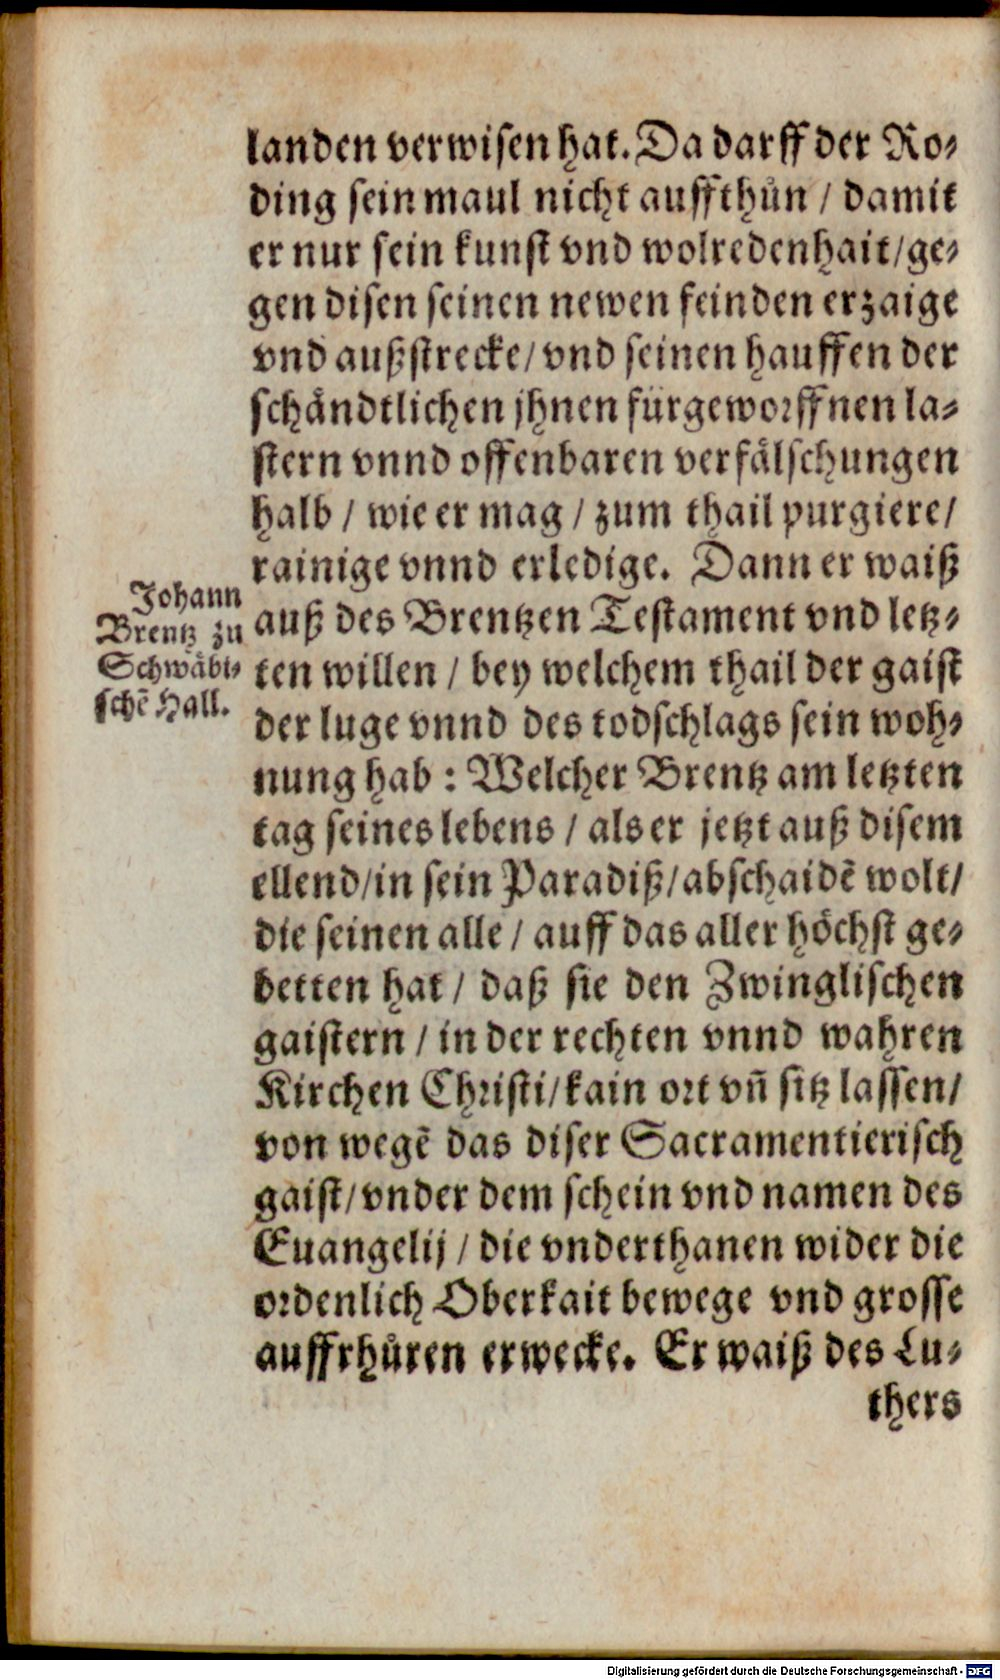 landen verwisen hat. Da darff der Ro-
ding sein maul nicht auffthůn / damit
er nur sein kunst vnd wolredenhait/ge-
gen disen seinen newen feinden erzaige
vnd außstrecke/vnd seinen hauffen der
schåndtlichen jhnen fürgeworffnen la-
stern vnnd offenbaren verfålschungen
halb / wie er mag / zum thail purgiere/
rainige vnnd erledige. Dann er waiß
auß des Brentzen Testament vnd letz-
ten willen / bey welchem thail der gaist
der luge vnnd des todschlags sein woh-
nung hab : Welcher Brentz am letzten
tag seines lebens / als er jetzt auß disem
ellend/in sein Paradiß/abschaidē wolt/
die seinen alle / auff das aller hòchst ge-
betten hat / daß sie den Zwinglischen
gaistern / in der rechten vnnd wahren
Kirchen Christi/kain ort vñ sitz lassen/
von wegē das diser Sacramentierisch
gaist/vnder dem schein vnd namen des
Euangelij / die vnderthanen wider die
ordenlich Oberkait bewege vnd grosse
auffrhůren erwecke. Er waiß des Lu-
thers
Johann
Brentz zu
Schwåbi-
schē Hall.
Digitalisierung gefördert durch die Deutsche Forschungsgemeinschaft - DFG